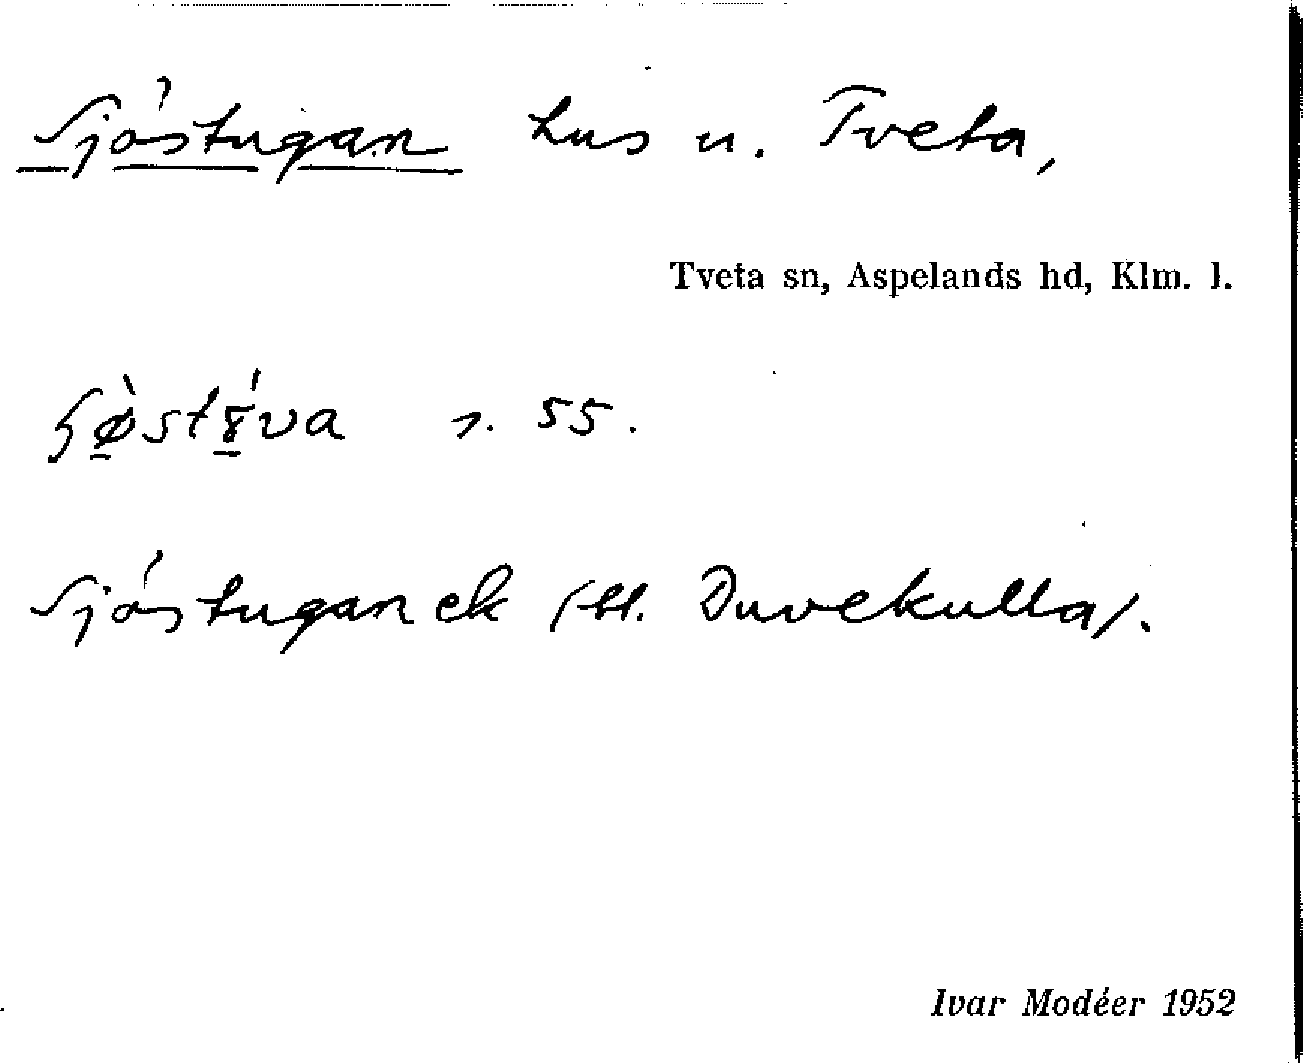 Sjöstugan hus u. Tveta,
Tveta sn, Aspelands hd, Klm. l.
s. 55.
Sjöstugan ek (bl. Duvekulla).
Ivar Modéer 1952